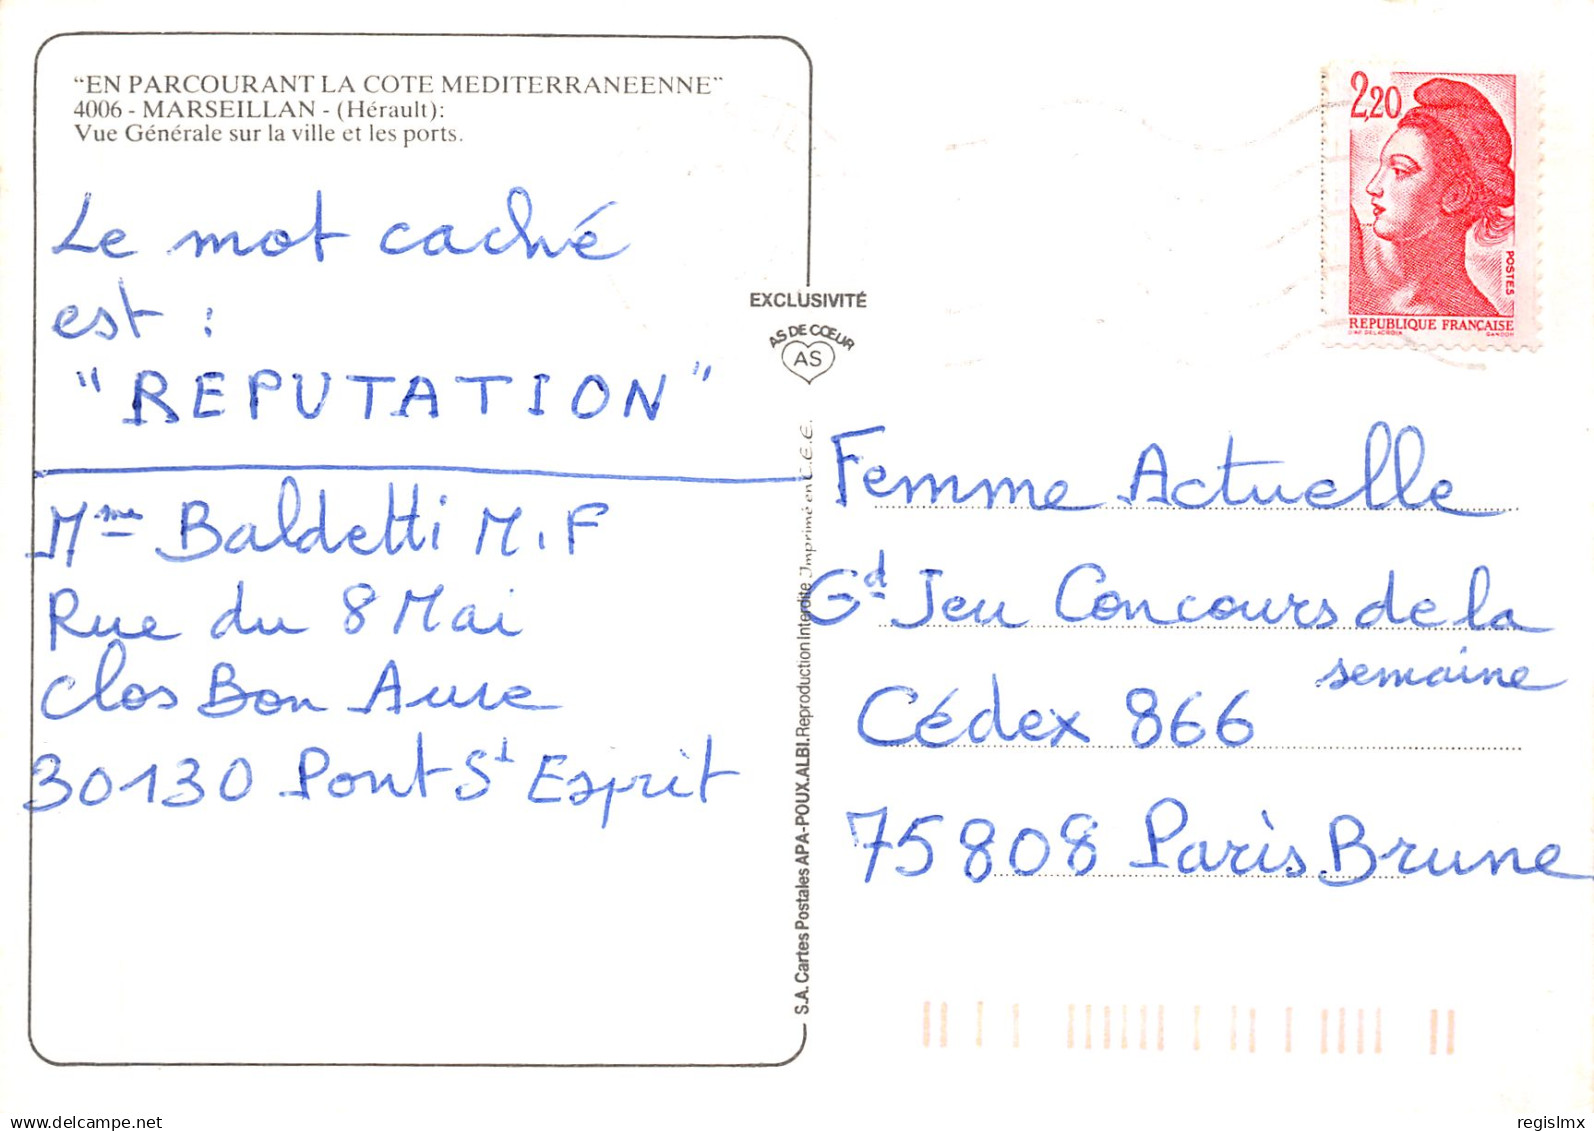 "EN PARCOURANT LA COTE MEDITERRANEENNE"
4006 - MARSEILLAN - (Hérault):
Vue Générale sur la ville et les ports.
Le mot caché
est :
"REPUTATION"
Mme Baldetti M.F
Rue du 8 Mai
Clos Bon Aure
30130 Pont St Esprit
EXCLUSIVITÉ
AS DE CŒUR
AS
S.A. Cartes Postales APA-POUX. ALBI. Reproduction Interdite Imprimé en C.E.E.
2,20
POSTES
REPUBLIQUE FRANÇAISE
D'AP. DELACROIX GANDON
Femme Actuelle
Gd Jeu Concours de la
semaine
Cédex 866
75808 Paris Brune
delcampe.net
regislmx